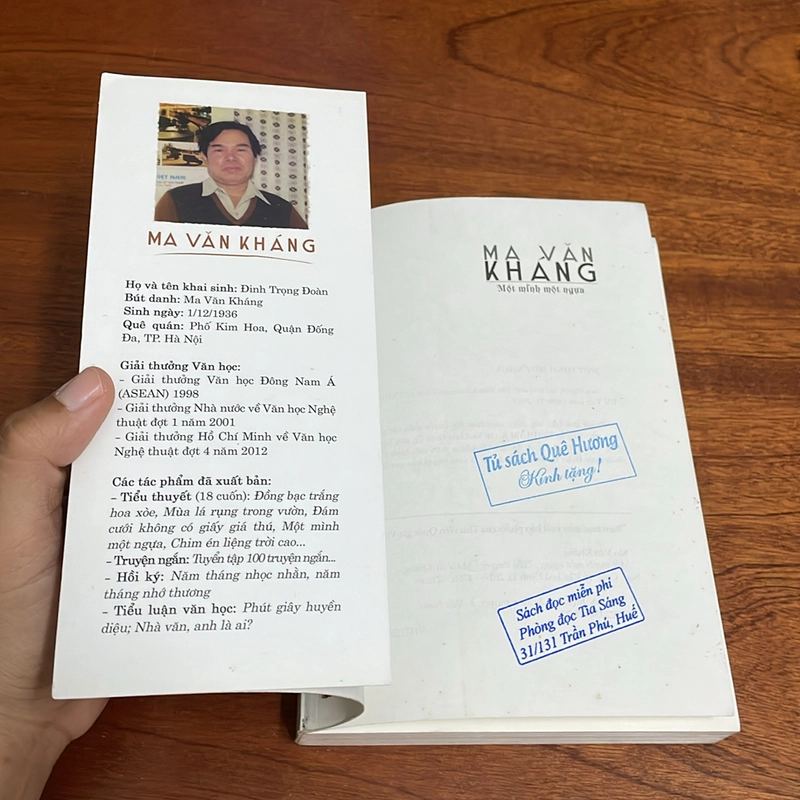 MA VĂN KHÁNG
Họ và tên khai sinh: Đinh Trọng Đoàn
Bút danh: Ma Văn Kháng
Sinh ngày: 1/12/1936
Quê quán: Phố Kim Hoa, Quận Đống
Đa, TP. Hà Nội
Giải thưởng Văn học:
– Giải thưởng Văn học Đông Nam Á
(ASEAN) 1998
– Giải thưởng Nhà nước về Văn học Nghệ
thuật đợt 1 năm 2001
– Giải thưởng Hồ Chí Minh về Văn học
Nghệ thuật đợt 4 năm 2012
Các tác phẩm đã xuất bản:
– Tiểu thuyết (18 cuốn): Đồng bạc trắng
hoa xòe, Mùa lá rụng trong vườn, Đám
cưới không có giấy giá thú, Một mình
một ngựa, Chim én liệng trời cao...
– Truyện ngắn: Tuyển tập 100 truyện ngắn...
– Hồi ký: Năm tháng nhọc nhằn, năm
tháng nhớ thương
– Tiểu luận văn học: Phút giây huyền
diệu; Nhà văn, anh là ai?
MA VĂN
KHÁNG
Một mình một ngựa
Tủ sách Quê Hương
Kính tặng!
Sách đọc miễn phí
Phòng đọc Tia Sáng
31/131 Trần Phú, Huế